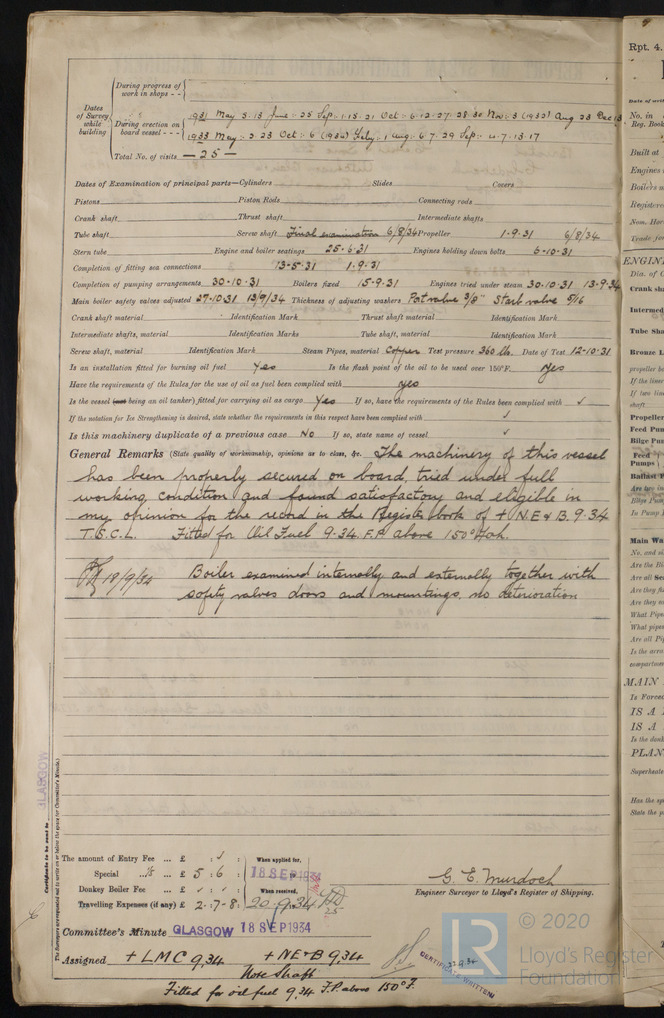 During progress of
work in shops - -
Dates
of Survey
while
building
During erection on
board vessel - - -
1931 May 5. 13 June: 25 Sep: 1. 15. 21 Oct: 6. 12. 27. 28. 30 Nov: 3 (1932) Aug 23 Dec 13
1933 May: 2. 23 Oct: 6 (1934) July: 1 Aug: 6. 7. 29 Sep: 4. 7. 13. 17
Total No. of visits — 25 —
Dates of Examination of principal parts—Cylinders Slides Covers
Pistons Piston Rods Connecting rods
Crank shaft Thrust shaft Intermediate shafts
Tube shaft Screw shaft Final examination 6/8/34 Propeller 1-9-31 6/8/34
Stern tube Engine and boiler seatings 25-6-31 Engines holding down bolts 6-10-31
Completion of fitting sea connections 13-5-31 1-9-31
Completion of pumping arrangements 30-10-31 Boilers fixed 15-9-31 Engines tried under steam 30-10-31 13-9-34
Main boiler safety valves adjusted 27-10-31 13/9/34 Thickness of adjusting washers Port valve 3/8" Starb valve 5/16
Crank shaft material Identification Mark Thrust shaft material Identification Mark
Intermediate shafts, material Identification Marks Tube shaft, material Identification Mark
Screw shaft, material Identification Mark Steam Pipes, material Copper Test pressure 360 lb. Date of Test 12-10-31
Is an installation fitted for burning oil fuel Yes Is the flash point of the oil to be used over 150°F. Yes
Have the requirements of the Rules for the use of oil as fuel been complied with yes
Is the vessel (not being an oil tanker) fitted for carrying oil as cargo Yes If so, have the requirements of the Rules been complied with ✓
If the notation for Ice Strengthening is desired, state whether the requirements in this respect have been complied with ✓
Is this machinery duplicate of a previous case No If so, state name of vessel ✓
General Remarks (State quality of workmanship, opinions as to class, &c. The machinery of this vessel
has been properly secured on board, tried under full
working condition and found satisfactory and eligible in
my opinion for the record in the Register book of + N.E & B. 9.34
T.S.C.L. Fitted for Oil Fuel 9.34. F.P. above 150° Fah.
18/9/34 Boiler examined internally and externally together with
safety valves doors and mountings, no deterioration
GLASGOW
Certificate to be sent to
(The Surveyors are requested not to write on or below the space for Committee's Minute.)
The amount of Entry Fee ... £ : ✓ :
Special ... £ 5 : 6 :
Donkey Boiler Fee ... £ ✓ : ✓ :
Travelling Expenses (if any) £ 2 : 7 : 8
When applied for,
18 SEP 1934
When received,
20.9.34
G. E. Murdoch
Engineer Surveyor to Lloyd's Register of Shipping.
Committee's Minute GLASGOW 18 SEP 1934
Assigned + LMC 9,34 + NE&B 9,34
Note Shaft
Fitted for oil fuel 9,34 F.P. above 150°F.
CERTIFICATE WRITTEN
22.9.34
LR
© 2020
Lloyd's Register
Foundation
Rpt. 4.
No. in
Reg. Book
Built at
Engines
Boilers
Registered
Nom. Hor
Trade for
ENGIN
Dia. of C
Crank sha
Intermed
Tube Sha
Bronze L
propeller
If the liner
If two line
shaft
Propeller
Feed Pum
Bilge Pum
Feed
Pumps
Ballast P
In Pump
Main Wa
No. and si
Are the Bi
Are all Se
Are they fi
Are they
What Pipe
What pipe
Are all Pi
Is the acce
compartmen
MAIN
Is Forced
IS A
IS A
Is the donk
PLAN
Superheate
Has the sp
State the p